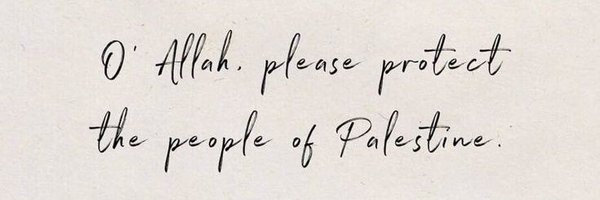 O' Allah, please protect
the people of Palestine.